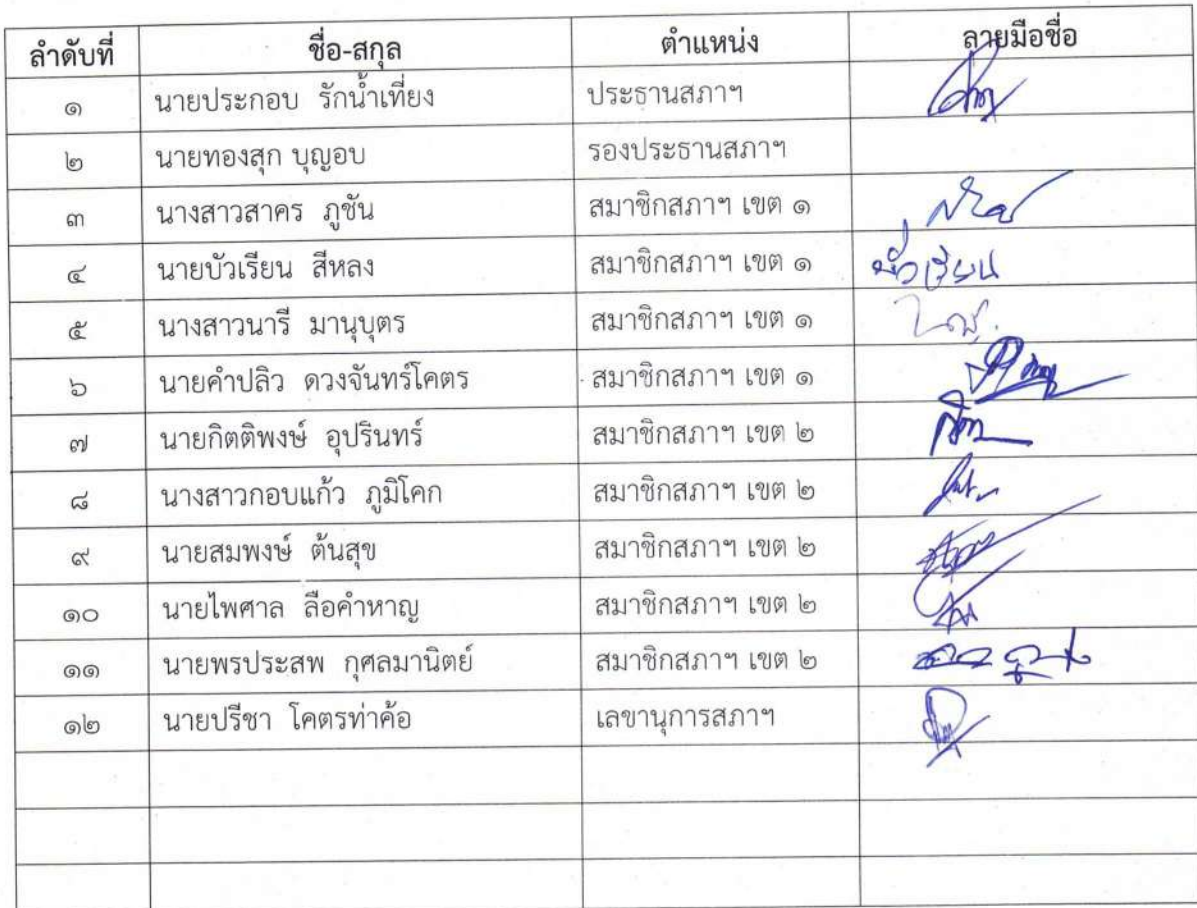 ลำดับที่ ชื่อ-สกุล ตำแหน่ง ลายมือชื่อ
๑ นายประกอบ รักน้ำเที่ยง ประธานสภาฯ
๒ นายทองสุก บุญอบ รองประธานสภาฯ
๓ นางสาวสาคร ภูชัน สมาชิกสภาฯ เขต ๑
๔ นายบัวเรียน สีหลง สมาชิกสภาฯ เขต ๑ บัวเรียน
๕ นางสาวนารี มานุบุตร สมาชิกสภาฯ เขต ๑
๖ นายคำปลิว ดวงจันทร์โคตร สมาชิกสภาฯ เขต ๑
๗ นายกิตติพงษ์ อุปรินทร์ สมาชิกสภาฯ เขต ๒
๘ นางสาวกอบแก้ว ภูมิโคก สมาชิกสภาฯ เขต ๒
๙ นายสมพงษ์ ต้นสุข สมาชิกสภาฯ เขต ๒
๑๐ นายไพศาล ลือคำหาญ สมาชิกสภาฯ เขต ๒
๑๑ นายพรประสพ กุศลมานิตย์ สมาชิกสภาฯ เขต ๒
๑๒ นายปรีชา โคตรท่าค้อ เลขานุการสภาฯ